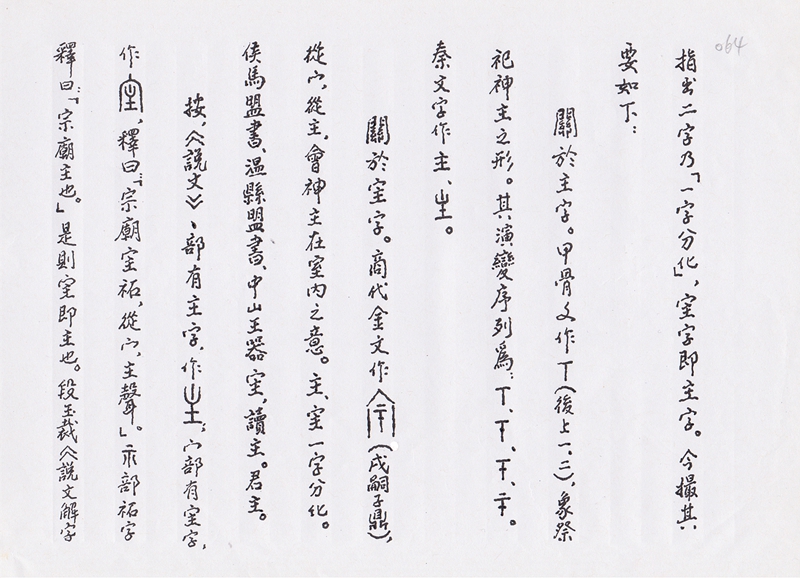 064
指出二字乃「一字分化」，宔字即主字。今撮其
要如下：
關於主字。甲骨文作丅(後上一、二)，象祭
祀神主之形。其演變序列爲：丅、丅、𠀍、示。
秦文字作主、㞷。
關於宔字。商代金文作(戍嗣子鼎)，
從宀，從主，會神主在室內之意。主、宔一字分化。
侯馬盟書、溫縣盟書、中山王器宔，讀主。君主。
按，《說文》丶部有主字，作；宀部有宔字，
作，釋曰：「宗廟宔祏，從宀，主聲。」示部祏字
釋曰：「宗廟主也。」是則宔即主也。段玉裁《說文解字